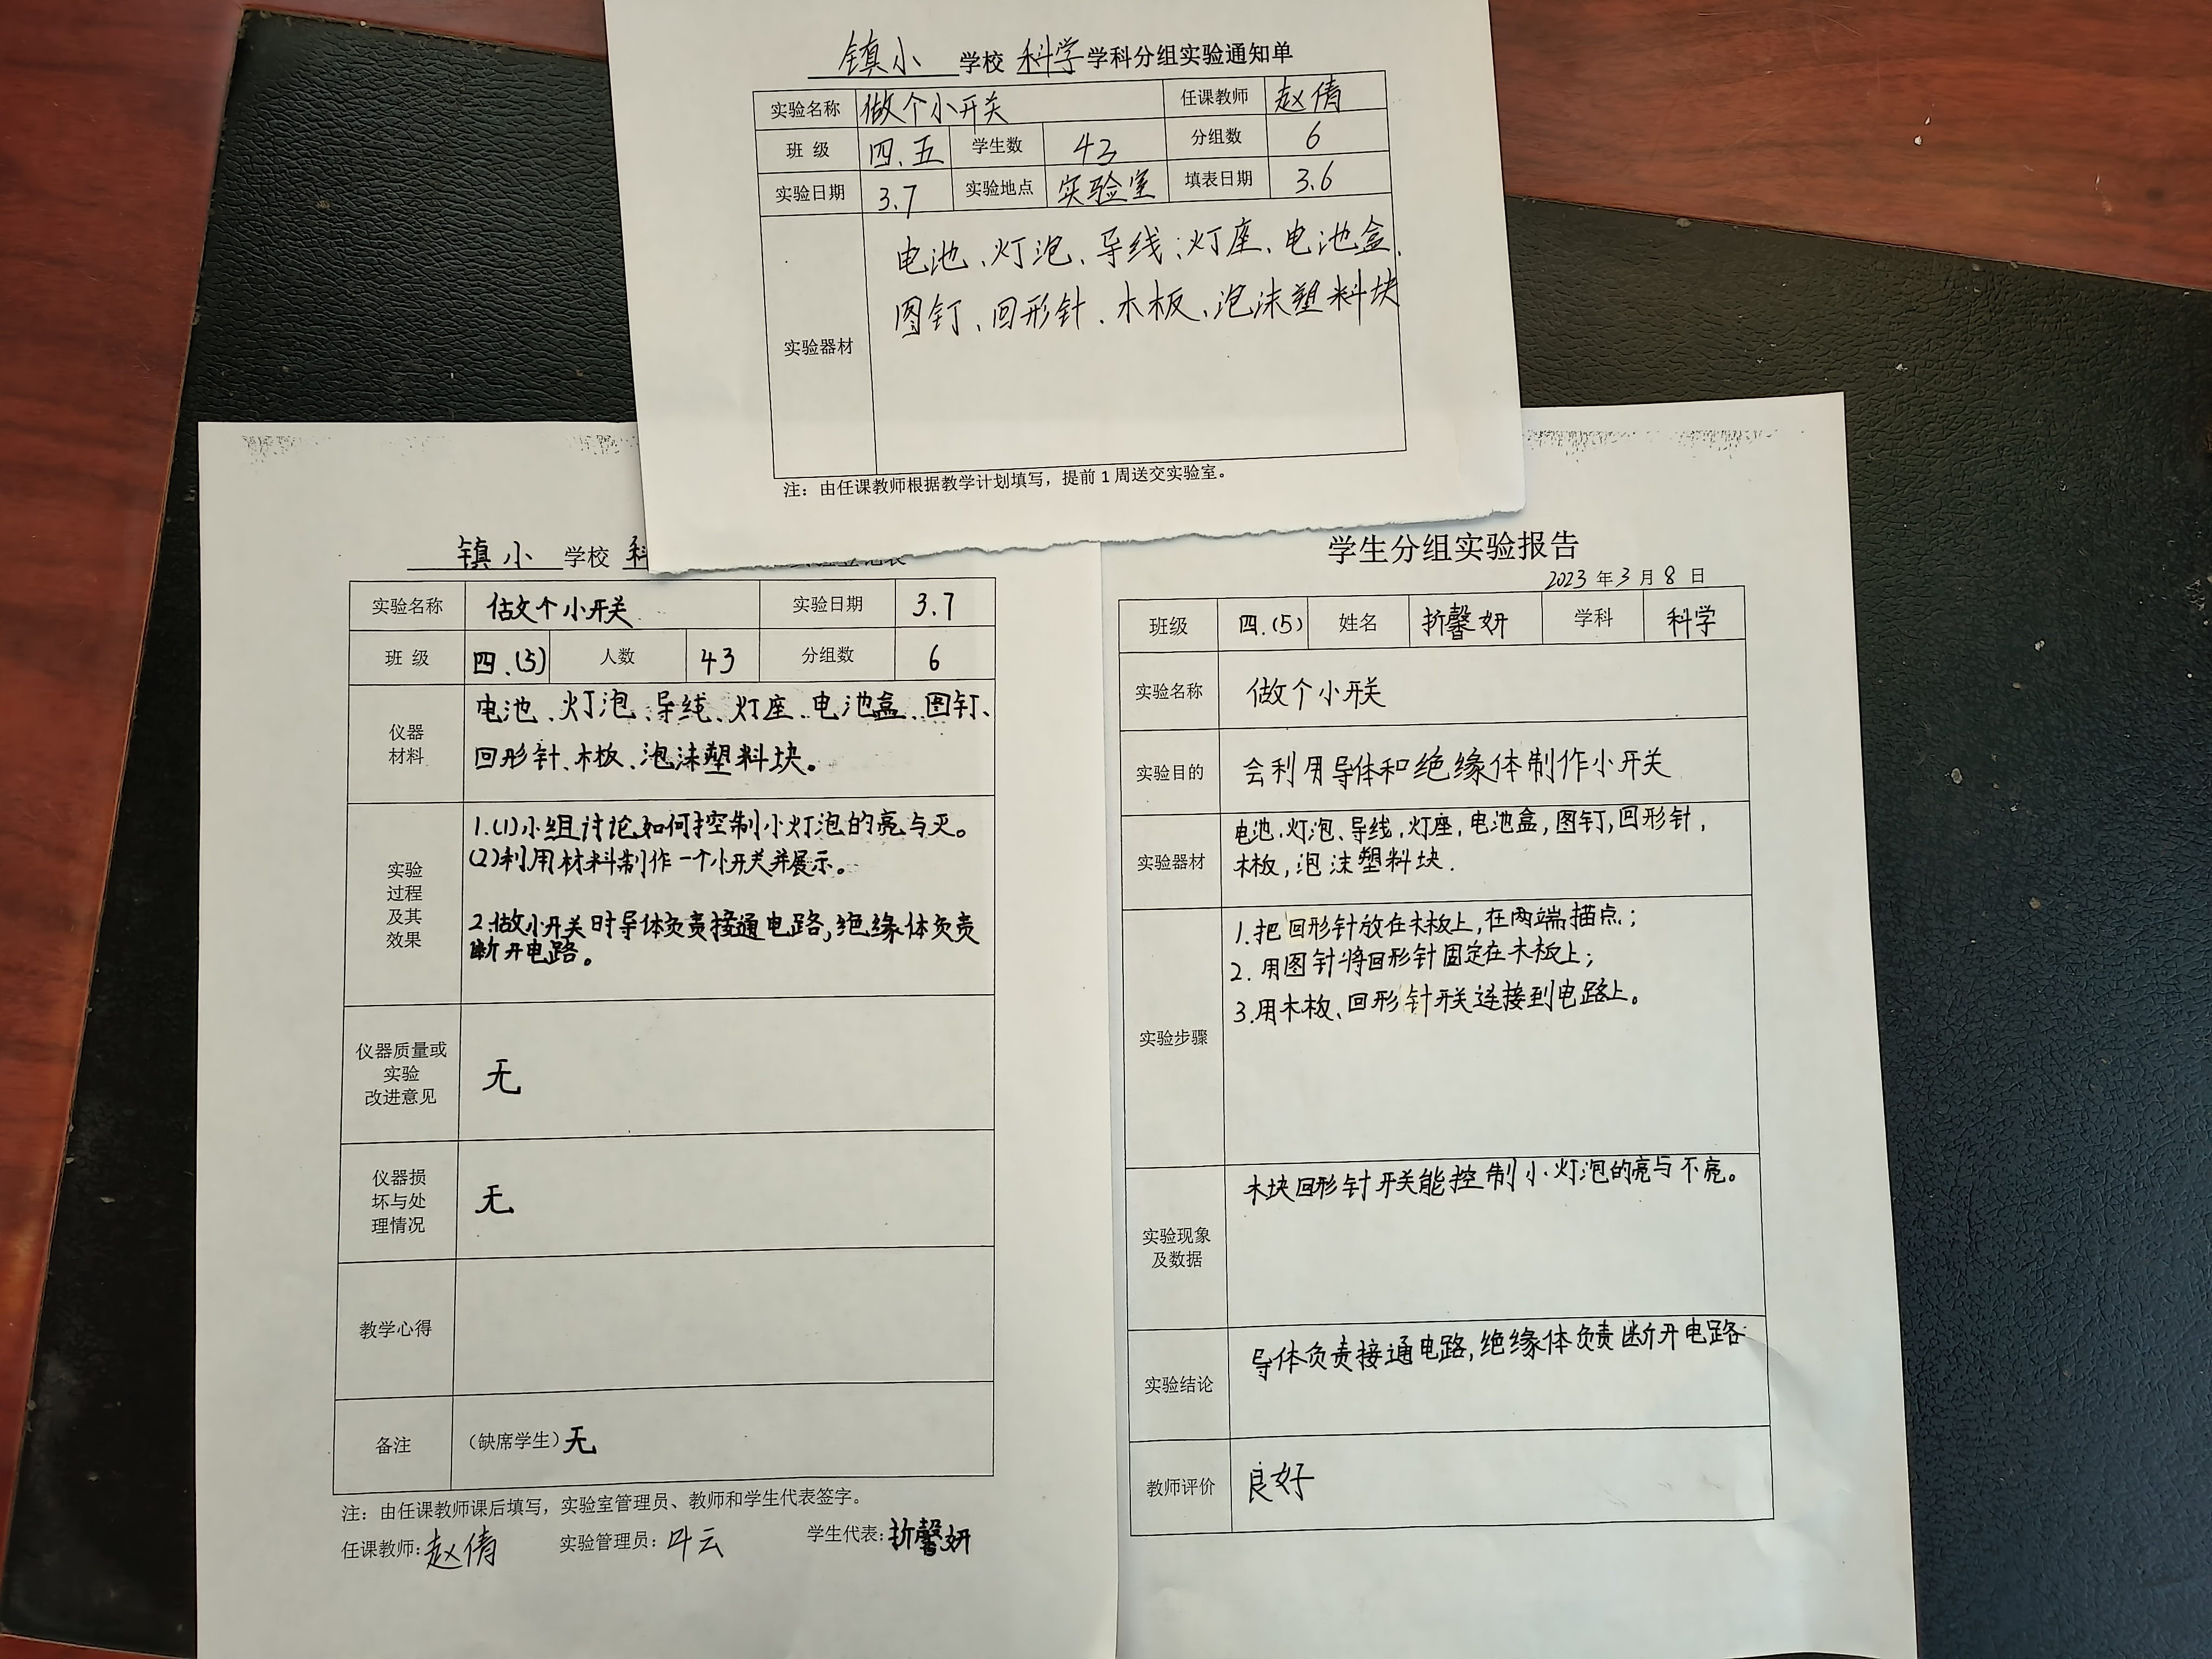 镇小 学校 科学 学科分组实验通知单
实验名称 做个小开关 任课教师 赵倩
班 级 四.五 学生数 43 分组数 6
实验日期 3.7 实验地点 实验室 填表日期 3.6
实验器材
电池、灯泡、导线、灯座、电池盒、
图钉、回形针、木板、泡沫塑料块
注：由任课教师根据教学计划填写，提前1周送交实验室。
镇小 学校
实验名称 做个小开关 实验日期 3.7
班 级 四.(5) 人数 43 分组数 6
仪器
材料
电池、灯泡、导线、灯座、电池盒、图钉、
回形针、木板、泡沫塑料块。
实验
过程
及其
效果
1.(1)小组讨论如何控制小灯泡的亮与灭。
(2)利用材料制作一个小开关并展示。
2.做小开关时导体负责接通电路,绝缘体负责
断开电路。
仪器质量或
实验
改进意见
无
仪器损
坏与处
理情况
无
教学心得
备注 （缺席学生）无
注：由任课教师课后填写，实验室管理员、教师和学生代表签字。
任课教师:赵倩 实验管理员:叶云 学生代表:折馨妍
学生分组实验报告
2023年3月8日
班级 四.(5) 姓名 折馨妍 学科 科学
实验名称 做个小开关
实验目的 会利用导体和绝缘体制作小开关
实验器材
电池.灯泡、导线,灯座,电池盒,图钉,回形针,
木板,泡沫塑料块.
实验步骤
1.把回形针放在木板上,在两端描点;
2.用图针将回形针固定在木板上;
3.用木板、回形针开关连接到电路上。
实验现象
及数据
木块回形针开关能控制小灯泡的亮与不亮。
实验结论
导体负责接通电路,绝缘体负责断开电路
教师评价 良好